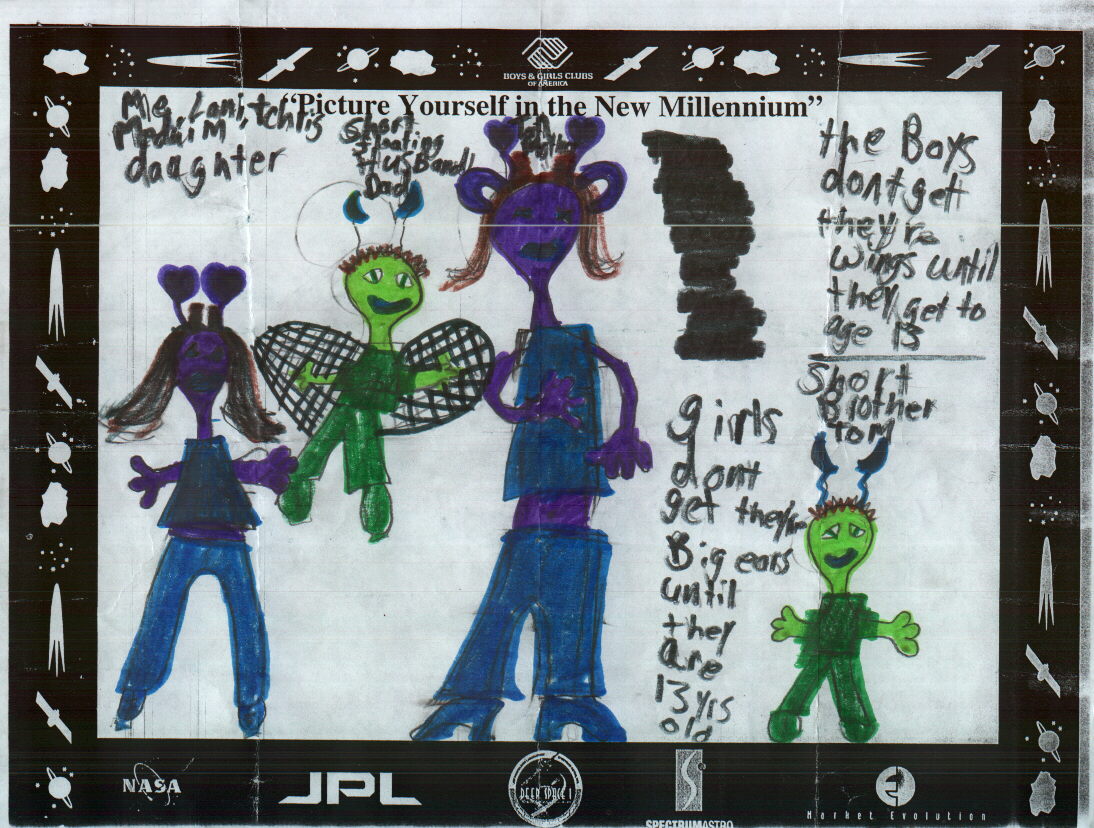 BOYS & GIRLS CLUBS
OF AMERICA
"Picture Yourself in the New Millennium"
Me, Lani, tchris
Meduim
daaghter
Short
floating
Husband/
Dad
the Boys
dont get
they're
wings until
they get to
age 13
Short
Brother
Tom
girls
dont
get they're
Big ears
until
they
are
13 yrs
old
NASA
JPL
DEEP SPACE 1
SPECTRUMASTRO
Market Evolution